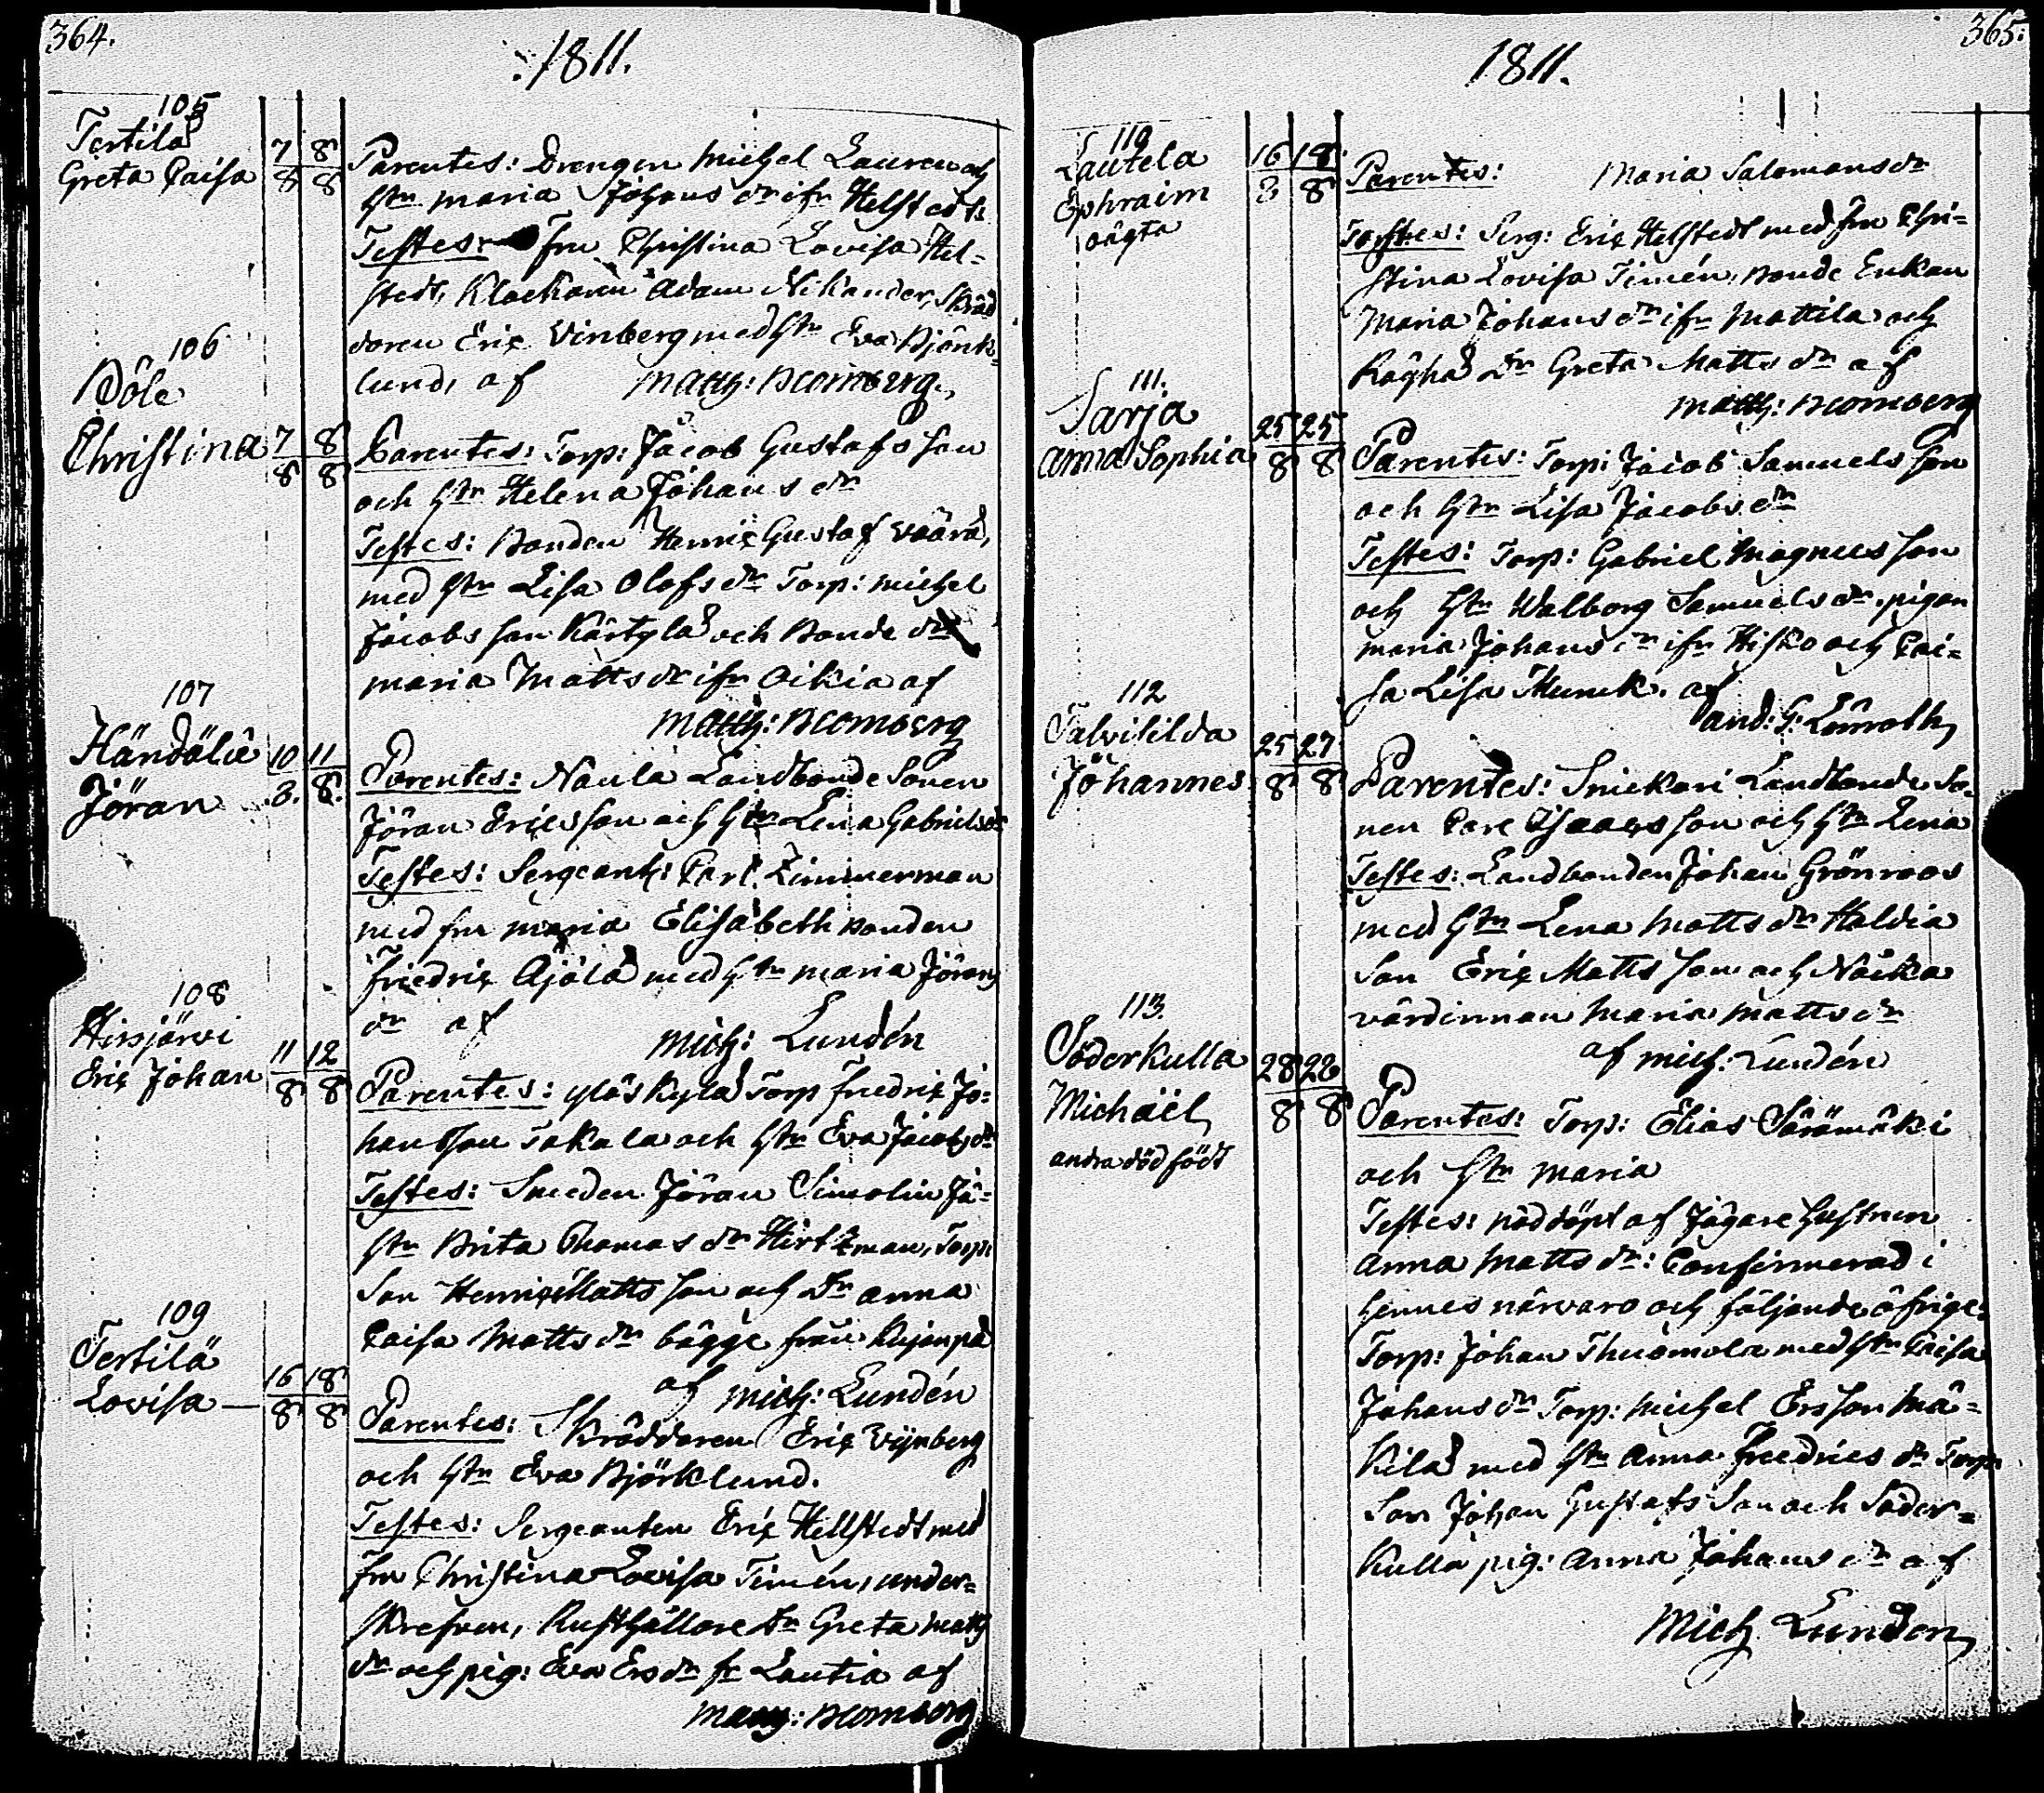 364.
1811.
105
Tertilä
Greta Caisa
7 8
8 8
Parentes: Drengen Michel Lauren och
hstn Maria Johans dr ifr Helstedt
Testes: Fru Christina Lovisa Hel-
stedt, Klockaren Adam Nikander, Skräd
daren Eric Vinberg med hstn Eva Björk-
lund, af Matth: Blomberg.
106
Böle
Christina
7 8
8 8
Parentes: Torp: Jacob Gustafs son
och hstn Helena Johans dr
Testes: Bonden Henric Gustaf
med hstn Lisa Olofs dr Torp: Michel
Jacobs son Kärtylä och Bonde dr
Maria Matts dr ifr Oikia af
Matth: Blomberg
107
Händälä
Jöran
10 11
8. 8.
Parentes: Naula Landbonde Sonen
Jöran Ericsson och hstn Lena Gabriels dr
Testes: Sergeant: Carl Zimmerman
med fru Maria Elisabeth Bonden
Friedric Äjälä med hstn Maria Jörans
dr af Mich: Lundén
108
Hirsjärvi
Eric Johan
11 12
8 8
Parentes: Yläskylä Torp Fredric Jo-
hansson Takala och hstn Eva Jacobs dr
Testes: Smeden Jöran Simolin
hstn Brita Thomas dr Hirtzman, Torp:
Son Henric Matts son och Dr Anna
Caisa Matts dr bägge från Kujanpä
af Mich: Lundén
109
Tertilä
Lovisa —
16 18
8 8
Parentes: Skräddaren Eric Vijnberg
och hstn Eva Björklund.
Testes: Sergeanten Eric Hellstedt med
fru Christina Lovisa Timén, under-
skrefven, Rusthållare dr Greta Matts
dr och pig: Eva Ers dr fr Lautia af
Matth: Blomberg
365.
1811.
110
Lautela
Ephraim
oägta
16 18
8 8
Parentes: Maria Salomons dr
Testes: Serg: Eric Helstedt med fru Chri-
stina Lovisa Timén, Bonde Enkan
Maria Johans dr ifr Mattila och
Råghå Dr Greta Matts dr af
Matth: Blomberg
111.
Sarja
Anna Sophia
25 25
8 8
Parentes: Torp: Jacob Samuels son
och hstn Lisa Jacobs dr
Testes: Torp: Gabriel Magnus son
och hstn Walborg Samuels dr. pigan
Maria Johans dr ifr Hisko och Cai-
sa Lisa Munck. af
And: G: Lönroth
112
Talvitilda
Johannes
25 27
8 8
Parentes: Snickari Landbonde So-
nen Carl Isaacs son och hstn Lena
Testes: Landbonden Johan Grönroos
med hstn Lena Matts dr Haldia
Son Eric Matts son och Näcka
värdinnan Maria Matts dr
af Mich: Lundén
113.
Söderkulla
Michaël
andra död födt
28 28
8 8
Parentes: Torp: Elias Säremäki
och hstn Maria
Testes: nöddöpt af Jägare hustrun
Anna Matts dr: Confirmerad i
hennes närvaro och följande öfrige:
Torp: Johan Thuomola med hstn Caisa
Johans dr Torp: Michel Ersson Mä-
kilä med hstn Anna Fredrics dr Torp:
Son Johan Gustafs Son och Söder-
kulla pig: Anna Johans dr af
Mich Lunden